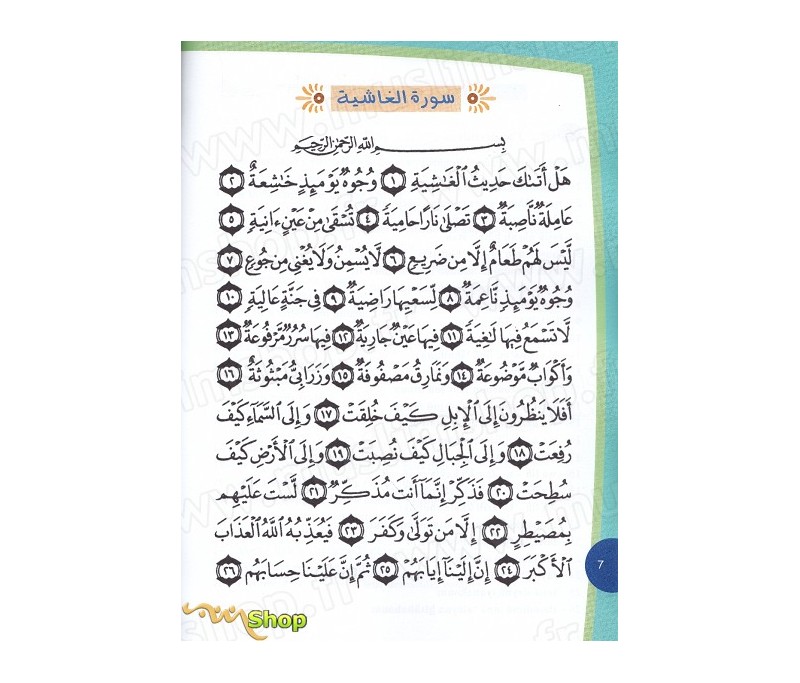 سورة الغاشية
بِسْمِ اللَّهِ الرَّحْمَٰنِ الرَّحِيمِ
هَلْ أَتَىٰكَ حَدِيثُ ٱلْغَٰشِيَةِ ١ وُجُوهٌ يَوْمَئِذٍ خَٰشِعَةٌ ٢
عَامِلَةٌ نَّاصِبَةٌ ٣ تَصْلَىٰ نَارًا حَامِيَةً ٤ تُسْقَىٰ مِنْ عَيْنٍ ءَانِيَةٍ ٥
لَّيْسَ لَهُمْ طَعَامٌ إِلَّا مِن ضَرِيعٍ ٦ لَّا يُسْمِنُ وَلَا يُغْنِى مِن جُوعٍ ٧
وُجُوهٌ يَوْمَئِذٍ نَّاعِمَةٌ ٨ لِّسَعْيِهَا رَاضِيَةٌ ٩ فِى جَنَّةٍ عَالِيَةٍ ١٠
لَّا تَسْمَعُ فِيهَا لَٰغِيَةً ١١ فِيهَا عَيْنٌ جَارِيَةٌ ١٢ فِيهَا سُرُرٌ مَّرْفُوعَةٌ ١٣
وَأَكْوَابٌ مَّوْضُوعَةٌ ١٤ وَنَمَارِقُ مَصْفُوفَةٌ ١٥ وَزَرَابِىُّ مَبْثُوثَةٌ ١٦
أَفَلَا يَنظُرُونَ إِلَى ٱلْإِبِلِ كَيْفَ خُلِقَتْ ١٧ وَإِلَى ٱلسَّمَآءِ كَيْفَ
رُفِعَتْ ١٨ وَإِلَى ٱلْجِبَالِ كَيْفَ نُصِبَتْ ١٩ وَإِلَى ٱلْأَرْضِ كَيْفَ
سُطِحَتْ ٢٠ فَذَكِّرْ إِنَّمَآ أَنتَ مُذَكِّرٌ ٢١ لَّسْتَ عَلَيْهِم
بِمُصَيْطِرٍ ٢٢ إِلَّا مَن تَوَلَّىٰ وَكَفَرَ ٢٣ فَيُعَذِّبُهُ ٱللَّهُ ٱلْعَذَابَ
ٱلْأَكْبَرَ ٢٤ إِنَّ إِلَيْنَآ إِيَابَهُمْ ٢٥ ثُمَّ إِنَّ عَلَيْنَا حِسَابَهُم ٢٦
7
Shop